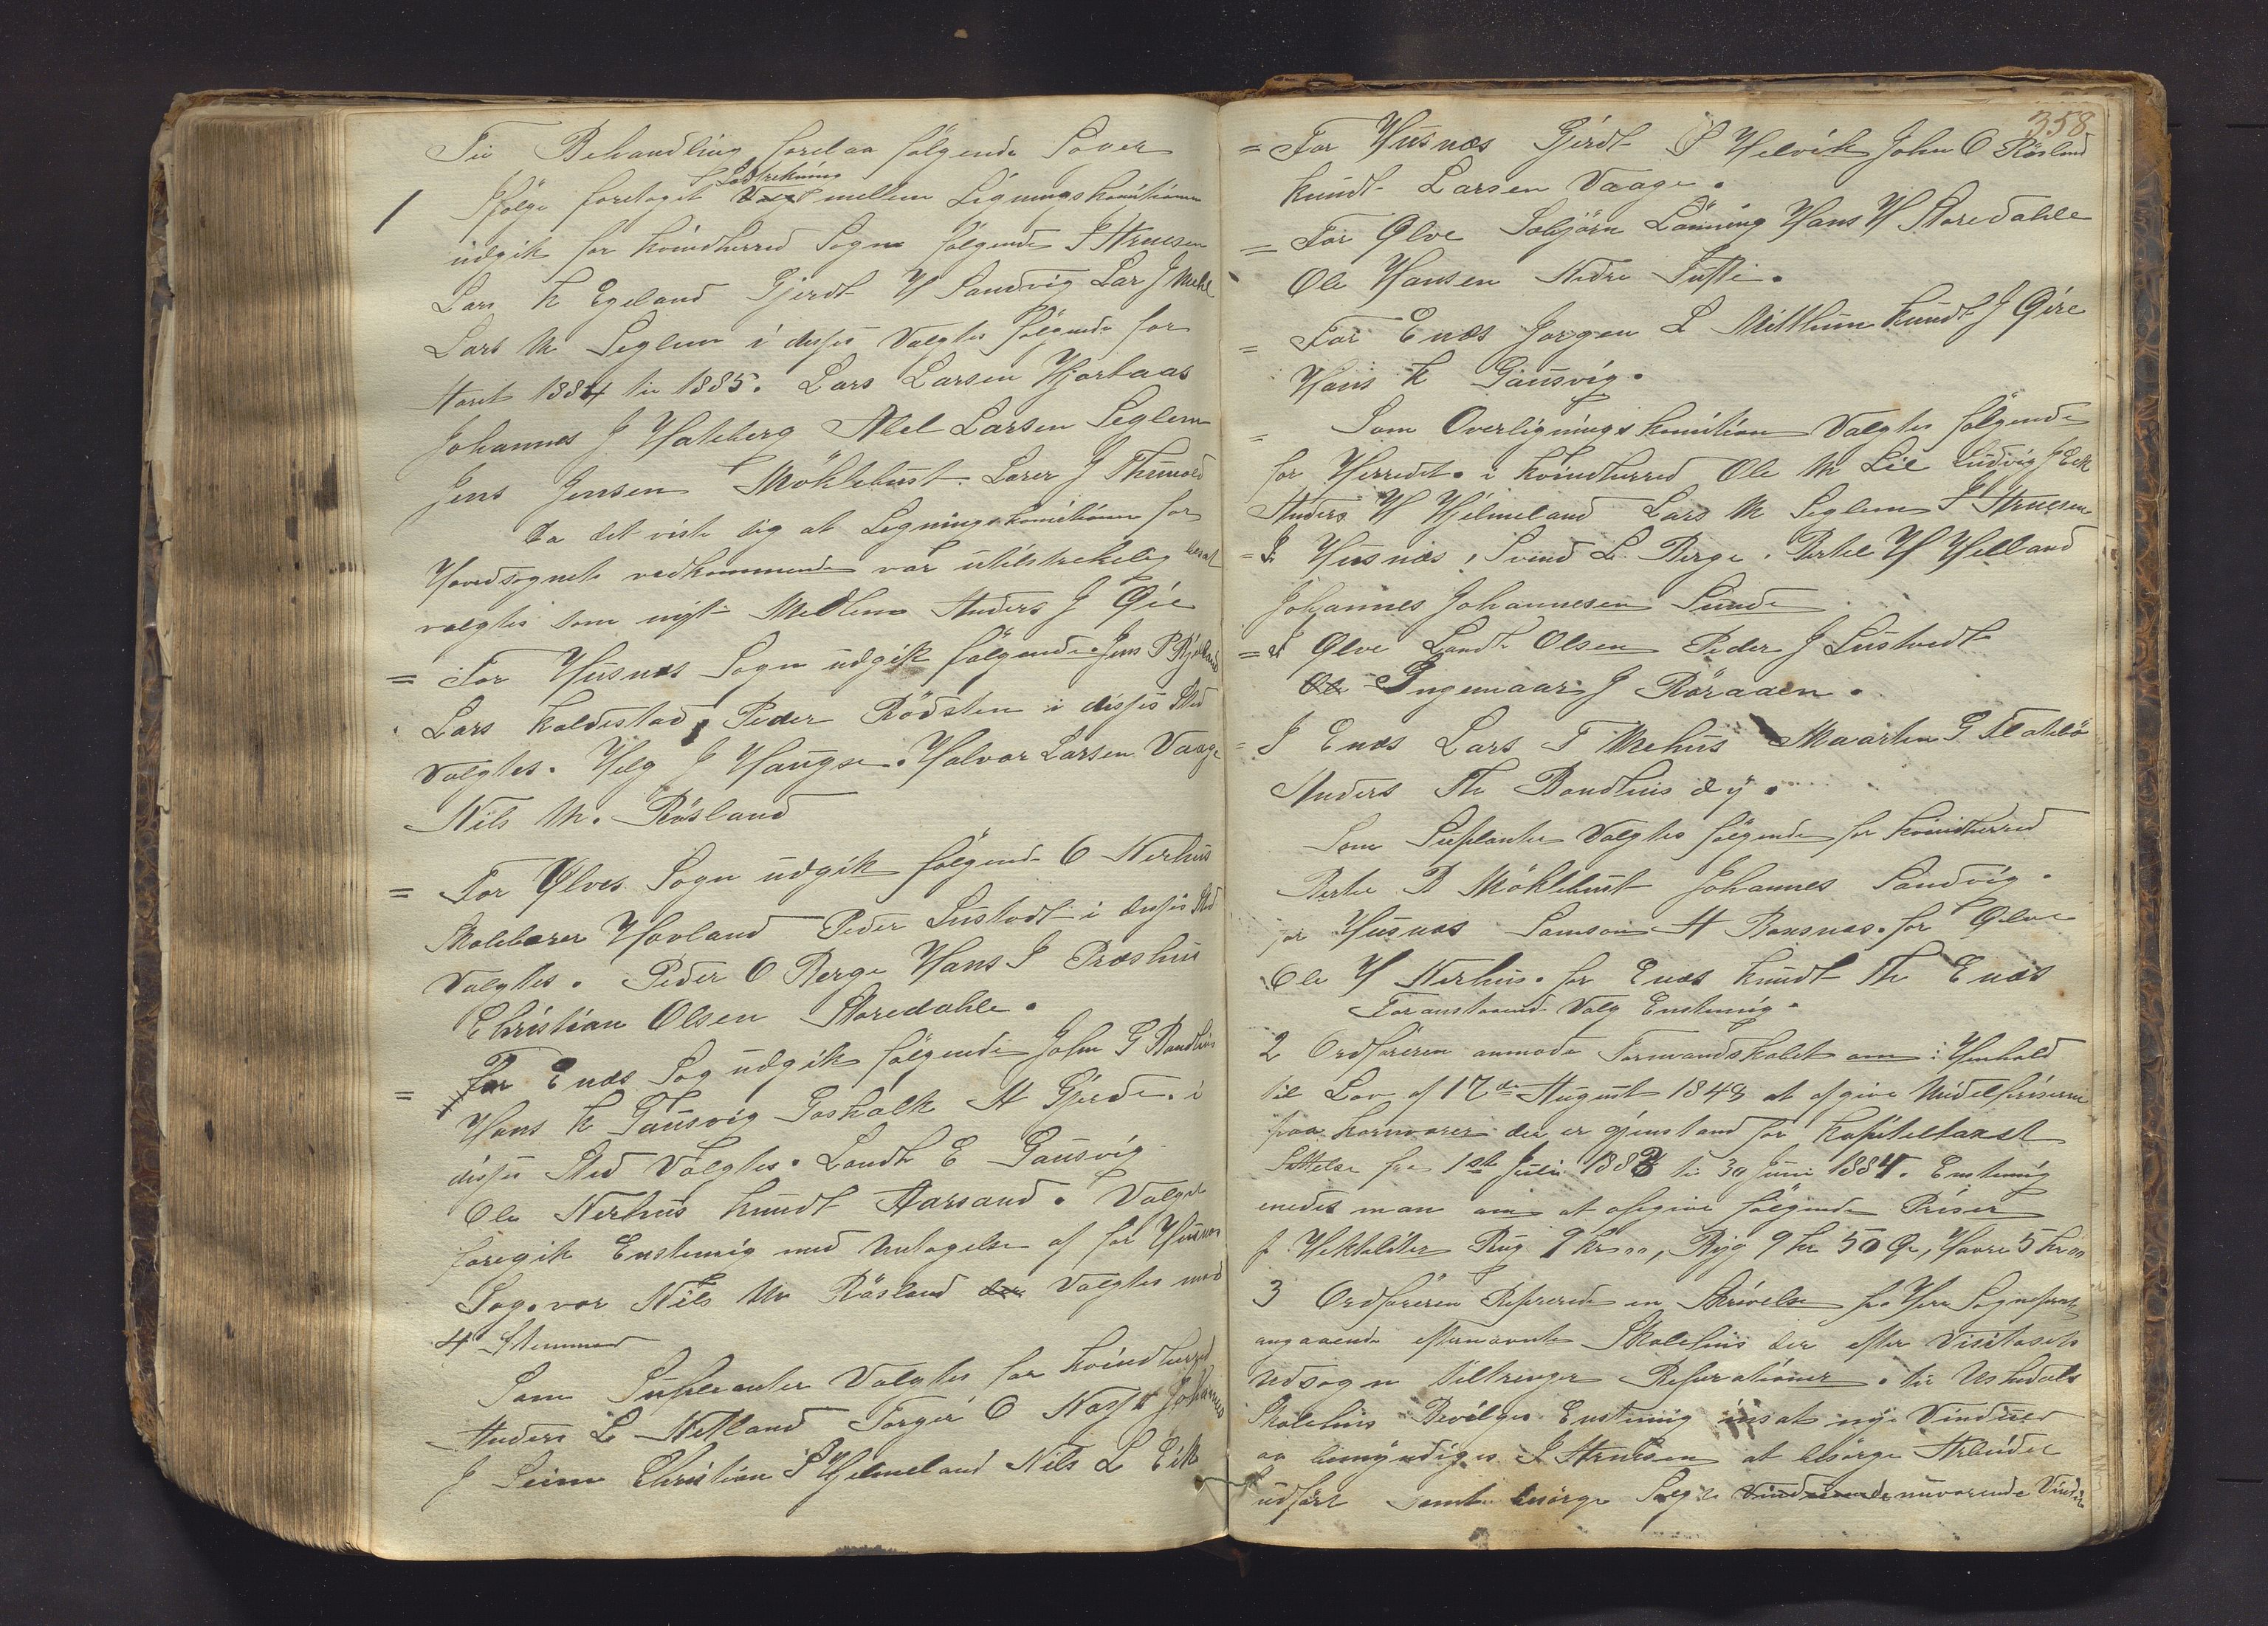 Til Behandling forelaa følgende Sager
1 Ifølge foretaget Lodtrekning mellem Ligningskomitionen
udgik for Kvindherred Sogn følgende I Arnesen
Lars K Egeland Gjerdt H Sandvig Lar J Mehl
Lars M Seglem i disses Valgtes følgende for
Aaret 1884 til 1885. Lars Larsen Hjortaas
Johannes J Hateberg Abel Larsen Seglem
Jens Jensen Møklebust Lærer J Themold
Da det viste sig at Legningskomitionen for
Hovedsognets vedkommende var utilstrekelig besat
valgtes som nyt Medlem Anders J Øie
= For Husnæs Sogn udgik følgende Jens P
Lars Koldestad, Peder Rødsten i disses Sted
Valgtes. Helg J Haugse. Halvor Larsen Vaage
Nils M. Røsland
= For Ølves Sogn udgik følgende O Nerhus
Skolelærer Hovland Peder Sustvedt i disses Sted
Valgtes. Peder O Berge Hans J Præshus
Christian Olsen Skoredahle.
= For Enæs Sog udgik følgende John G Bondhus
Hans K Gausvig Goskalk A Gjerde. i
disses Sted Valgtes. Landt E Gausvig
Ole Nerhus Knudt Aarsand. Valget
foregik Enstemig med Untagelse af for Husnæs
Sog. var Nils M Røsland der Valgtes med
4 Stemmer
Som Supleanter Valgtes for Kvindherred
Anders L Netland Torger O Johannes
J Seim Christian P Hjelmeland Nils L Eik
358
= For Husnæs Gjerdt P Helvik John O Røsland
Knudt Larsen Vaage.
= For Ølve Sebjørn Lønning Hans H Skoredahle
Ole Hansen Nedre Tufte.
= For Enæs Jorgen L Mittun Knudt J Øire
Hans K Gausvig.
= Som Overligningskomition Valgtes følgende
for Herredet. i Kvindherred Ole M Lie Ludvig J Eik
Anders H Hjelmeland Lars M Seglem I Arnesen
= I Husnæs, Svend L. Berge. Bertel H Helland
Johannes Johannesen Sunde
= I Ølve Landt Olsen Peder J Sustvedt
Ole Ingemaar J Røraaen.
= I Enæs Lars T Mehus Maarten G Flatebø
Anders Th Bondhus dy.
Som Supleanter Valgtes følgende for Kvindherred
Bertel B Møklebust Johannes Sandvig.
for Husnæs Samson A Ransnæs. for Ølve
Ole H Nerhus. for Enæs Knudt Th Enæs
Foranstaaende Valg Enstemig.
2 Ordføreren anmode Formandskabet om i Henhold
til Lov af 17de August 1848 at afgive Midelpriserne
paa Kornvarer der er gjenstand for Kapiteltaxst
Settelse fra 1ste Juli 1883 til 30 Juni 1884. Enstemig
enedes man om at afgive følgende Priser
p. Hektoliter Rug 9 Kr 00, Byg 9 Kr 50 Øre, Havre 5 Kr 00
3 Ordføreren Refererede en Skrivelse fra Herr Sogneprest
angaaende efternævnte Skolehus der efter Visitasets
Udsagn tiltrenger Reperationer. til Uskedals
Skolehus Bevilges Enstemig insat nye Vinduer
og bemyndiges I Arnesen at besørge Arbeidet
udført samt besørge Salg de Vinduerne nuværende Vindu